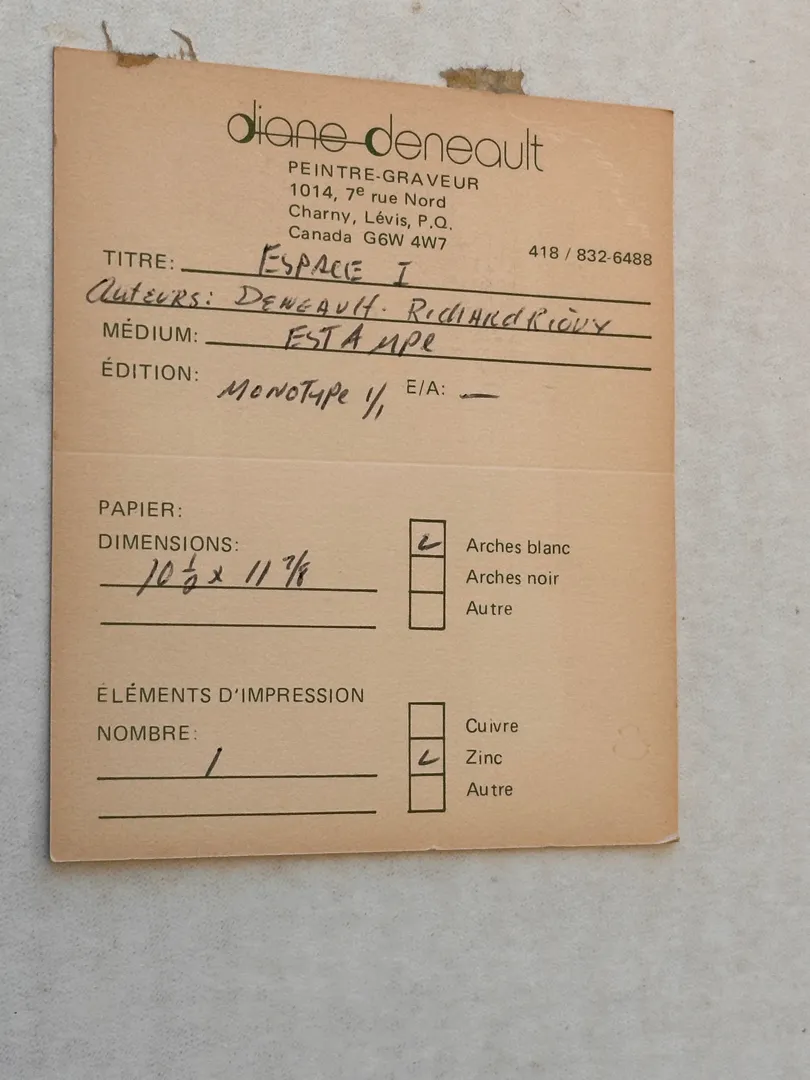 diane deneault
PEINTRE-GRAVEUR
1014, 7e rue Nord
Charny, Lévis, P.Q.
Canada G6W 4W7
418 / 832-6488
TITRE: ESPACE I
AUTEURS: DENEAULT. RICHARD RIOUX
MÉDIUM: ESTAMPE
ÉDITION: MONOTYPE 1/1 E/A: —
PAPIER:
DIMENSIONS:
10 1/2 x 11 7/8
Arches blanc
Arches noir
Autre
ÉLÉMENTS D'IMPRESSION
NOMBRE:
1
Cuivre
Zinc
Autre